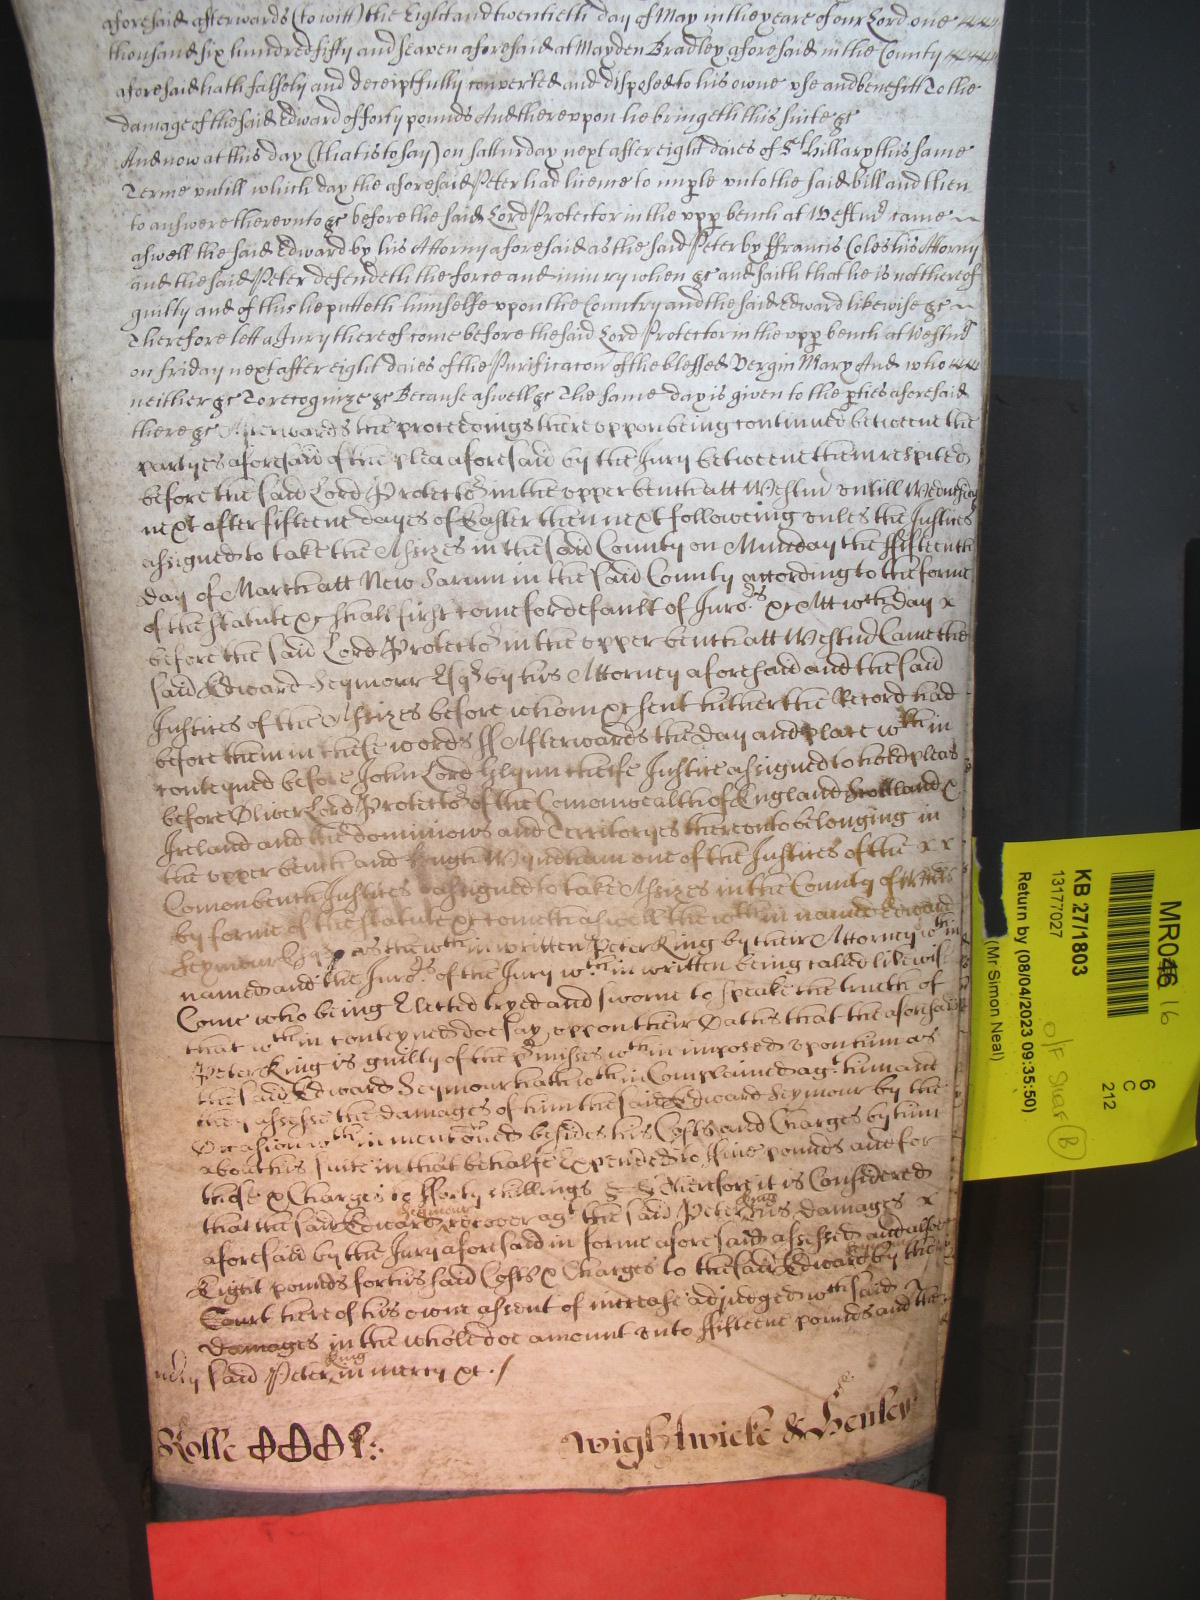 aforesaid afterwards (to witt) the Eight and twentieth day of May in the yeare of our Lord one
thousand six hundred fifty and seaven aforesaid at Mayden Bradley aforesaid in the County
aforesaid hath falsely and deceiptfully converted and disposed to his owne use and benefitt To the
damage of the said Edward of forty pounds And thereupon he bringeth this suite &c
And now at this day (that is to say) on satturday next after eight daies of St Hillary this same
Terme untill which day the aforesaid Peter had licence to imple unto the said bill and then
to answere thereunto &c before the said Lord Protector in the upp bench at Westmr came
aswell the said Edward by his Attorny aforesaid as the said Peter by ffrancis Coles his Attorny
and the said Peter defendeth the force and iniury when &c and saith that he is not thereof
guilty and of this he putteth himselfe upon the Country and the said Edward likewise &c
Therefore lett a Jury thereof come before the said Lord Protector in the upp bench at Westmr
on friday next after eight daies of the Purificacon of the blessed Vergin Mary And who
neither &c To recognize &c Because aswell &c The same day is given to the pties aforesaid
there &c Afterwards the proceedings thereuppon being continued betweene the
partyes aforesaid of the plea aforesaid by the Jury betweene them respited
before the said Lord Protector in the upper bench att Westmr untill Wednesday
next after fifteene dayes of Easter then next followeing unles the Justices
assigned to take the Assizes in the said County on Munday the ffifteenth
day of March att New Sarum in the said County according to the forme
of the Statute &c shall first come for default of Juro:rs &c Att wch day
before the said Lord Protector in the upper bench att Westmr Came the
said Edward Seymour Esqr by his Attorney aforesaid and the said
Justices of the Assizes before whom &c sent hither their Record had
before them in these words ss Afterwards the day and place wthin
conteyned before John Lord Glynn cheife Justice assigned to hold pleas
before Oliver Lord Protector of the Comonwealth of England Scotland &
Ireland and the dominions and Territoryes thereunto belonging in
the upper bench and Hugh Wyndham one of the Justices of the
Comon bench Justices assigned to take Assizes in the County of Wiltes
by forme of the Statute &c come th aswell the wthin named Edward
Seymour Esqr as the wthin written Peter King by their Attorney wthin
named and the Juro:rs of the Jury wthin written being called likewise
Come who being Elected tryed and sworne to speake the trueth of
that wthin conteyned doe say uppon their Oathes that the aforesaid
Peter King is guilty of the pmisses wthin imposed upon him as
the said Edward Seymour hath wthin Complained agt him and
they assesse the damages of him the said Edward Seymour by the
Occasion wthin mentoned besides his Costs and Charges by him
about his suite in that behalfe Expended to ffive pounds and for
those & Charges to fforty shillings Therefore it is Considered
that the said Edward Seymour recover agt the said Peter King his damages
aforesaid by the Jury aforesaid in forme aforesaid assessed and alsoe
Eight pounds for his said Costs & Charges to the said Edward by the
Court here of his owne assent of increase adjudged wch said
damages in the whole doe amount unto ffifteene pounds and the
said Peter King in mercy &c./
Rolle
Wightwicke & Henley
MR046
16
KB 27/1803
13177027
Return by (08/04/2023 09:35:50)
(Mr Simon Neal)
6
C
212
B